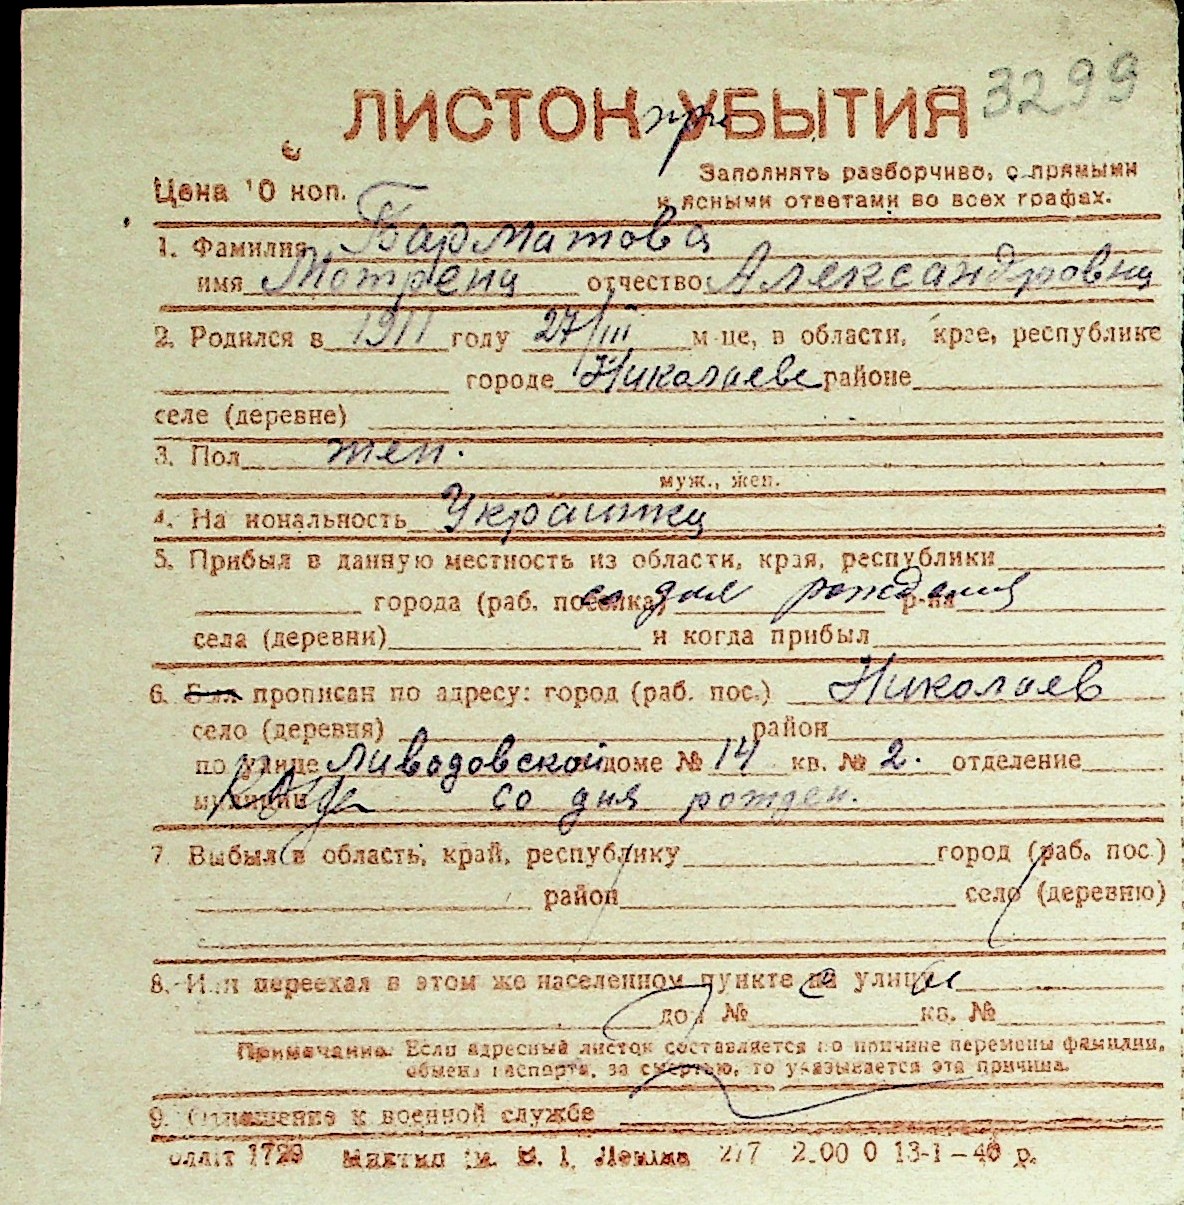 3299
ЛИСТОК при УБЫТИЯ
Цена 10 коп.
Заполнять разборчиво, с прямыми
и ясными ответами во всех графах.
1. Фамилия Барматова
имя Мотрена отчество Александровна
2. Родился в 1911 году 27/III м-це, в области, крае, республике
городе Николаеве районе
селе (деревне)
3. Пол жен.
муж., жен.
4. Национальность Украинка
5. Прибыл в данную местность из области, края, республики
города (раб. поселка) со дня рождения р-на
села (деревни) и когда прибыл
6. Был прописан по адресу: город (раб. пос.) Николаев
село (деревня) район
по улице Ливадовской доме № 14 кв. № 2. отделение
милиции Когда со дня рожден.
7 Выбыл в область, край, республику город (раб. пос.)
район село (деревню)
8. Или переехал в этом же населенном пункте на улицу
дом № кв. №
Примечание. Если адресный листок составляется по причине перемены фамилии,
обмена паспорта, за смертью, то указывается эта причина.
9. Отношение к военной службе
1729 им. В. И. Ленина 277 2.00 0 13-1-46 р.